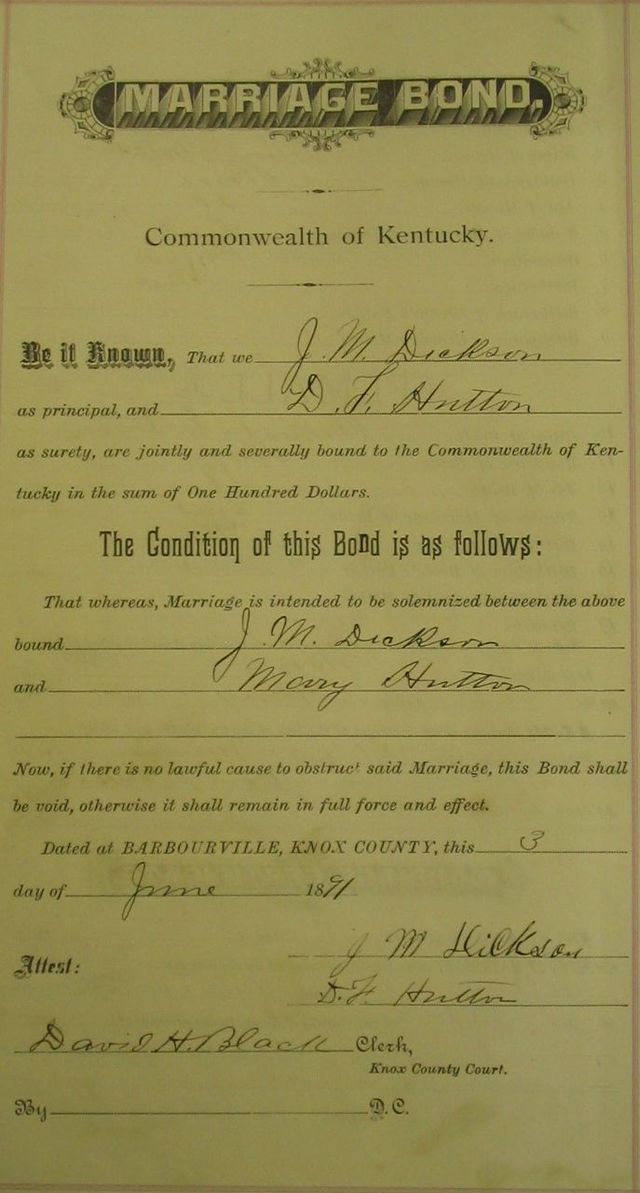 MARRIAGE BOND.
Commonwealth of Kentucky.
Be it Known, That we J. M. Dickson
as principal, and D. F. Hutton
as surety, are jointly and severally bound to the Commonwealth of Ken-
tucky in the sum of One Hundred Dollars.
The Condition of this Bond is as follows:
That whereas, Marriage is intended to be solemnized between the above
bound J. M. Dickson
and Mary Hutton
Now, if there is no lawful cause to obstruct said Marriage, this Bond shall
be void, otherwise it shall remain in full force and effect.
Dated at BARBOURVILLE, KNOX COUNTY, this 3
day of June 1891
J M Dickson
Attest:
D. F. Hutton
David H. Black Clerk,
Knox County Court.
By D.C.